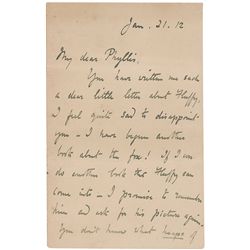 Jan. 31. 12
My dear Phyllis.
You have written me such
a dear little letter about Fluffy.
I feel quite sad to disappoint
you – I have begun another
book about the fox! If I can
do another book that Fluffy can
come into – I promise to remember
him and ask for his picture again
You don't know what heaps of